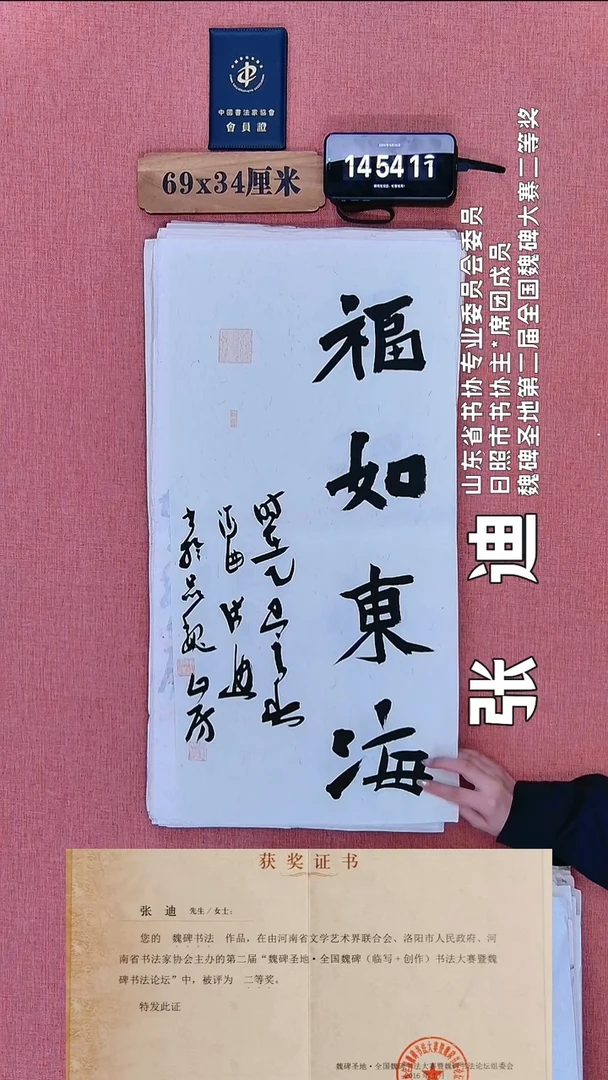 中國書法家協會
會員證
69x34厘米
14 54 11
福如東海
山东省书协专业委员会委员
日照市书协主*席团成员
魏碑圣地第二届全国魏碑大赛二等奖
张 迪
获奖证书
张 迪 先生/女士：
您的 魏碑书法 作品，在由河南省文学艺术界联合会、洛阳市人民政府、河
南省书法家协会主办的第二届“魏碑圣地·全国魏碑（临写+创作）书法大赛暨魏
碑书法论坛”中，被评为 二等奖。
特发此证
魏碑圣地·全国魏碑书法大赛暨魏碑书法论坛组委会